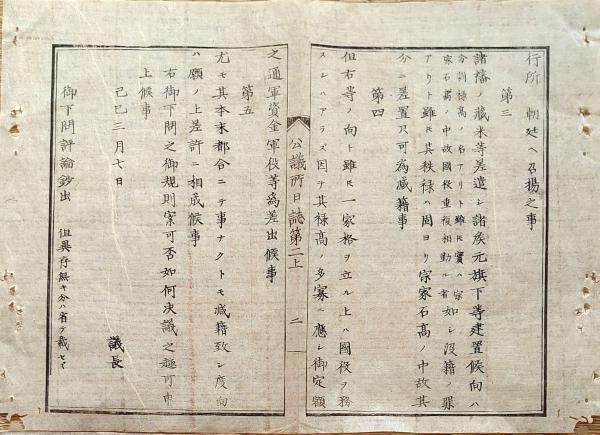 行所 朝廷ヘ召揚之事
第三
諸藩ノ藏米等差遣シ諸矦元旗下等建置候向ハ
分割祿高ノ名アリト雖𪜈實ハ宗
家石高ノ中故國役重複相勤ル者如シ沒籍ノ罪
アリト雖𪜈其秩祿ハ固ヨリ宗家石高ノ中故其
分ニ差置只可為减籍事
第四
但右等ノ向ト雖𪜈一家格ヲ立ル上ハ國役ヲ務
スンハアラズ因テ其祿高ノ多寡ニ應シ御定額
公議所日誌第二上 二
之通軍資金軍役等為差出候事
第五
尤モ其本末都合ニテ事ナクトモ减籍致シ度向
ハ願ノ上差許ニ相成候事
右御下問之御規則案可否如何决議之趣可申
上候事
己巳三月七日
議長
御下問評論鈔出 但異存無キ分ハ省テ載セス